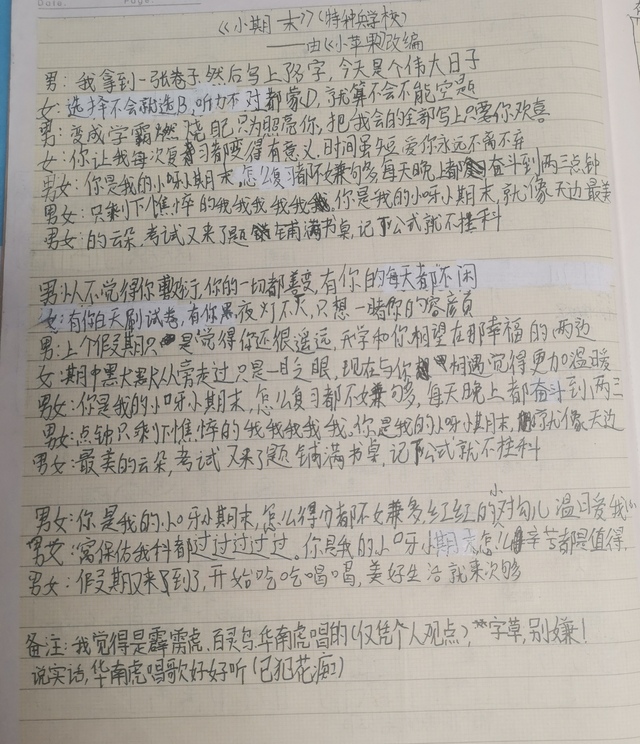 《小期末》(特种兵学校)
——由《小苹果》改编
男:我拿到一张卷子,然后写上名字,今天是个伟大日子
女:选择不会就选B,听力不对都蒙D,就算不会不能空题
男:变成学霸燃烧自己只为照亮你,把我会的全部写上只要你欢喜
女:你让我每次复习都变得有意义,时间虽短爱你永远不离不弃
男女:你是我的小呀小期末,怎么复习都不嫌多,每天晚上都奋斗到两三点钟
男女:只剩下憔悴的我我我我我,你是我的小呀小期末,就像天边最美
男女:的云朵,考试又来了题铺满书桌,记下公式就不挂科
男:从不觉得你讨厌,你的一切都喜爱,有你的每天都不闲
女:有你白天刷试卷,有你黑夜灯不灭,只想一睹你的容颜
男:上个假期只是觉得你还很遥远,开学和你相望在那幸福的两边
女:期中黑大黑大从旁走过只是一日之眼,现在与你相遇觉得更加温暖
男女:你是我的小呀小期末,怎么复习都不嫌多,每天晚上都奋斗到两三
男女:点钟只剩下憔悴的我我我我我,你是我的小呀小期末,就像天边
男女:最美的云朵,考试又来了题铺满书桌,记下公式就不挂科
男女:你是我的小呀小期末,怎么得分都不嫌多,红红的小对勾儿温暖我心
男女:窝保佑我科都过过过过过,你是我的小呀小期末,怎么辛苦都是值得,
男女:假期又来了到了,开始吃吃喝喝,美好生活就来次够
备注:我觉得是霹雳虎、百灵鸟、华南虎唱的(仅凭个人观点),字草,别嫌!
说实话,华南虎唱歌好好听(已犯花痴)